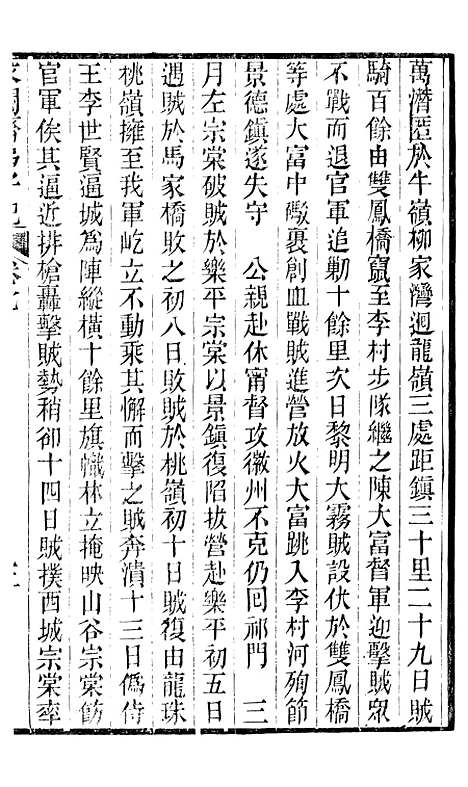 萬潛匿於牛嶺柳家灣迴龍嶺三處距鎮三十里二十九日賊
騎百餘由雙鳳橋竄至李村步隊繼之陳大富督軍迎擊賊眾
不戰而退官軍追勦十餘里次日黎明大霧賊設伏於雙鳳橋
等處大富中礮裹創血戰賊進營放火大富跳入李村河殉節
景德鎮遂失守　公親赴休甯督攻徽州不克仍回祁門　三
月左宗棠破賊於樂平宗棠以景鎮復陷拔營赴樂平初五日
遇賊於馬家橋敗之初八日敗賊於桃嶺初十日賊復由龍珠
桃嶺擁至我軍屹立不動乘其懈而擊之賊奔潰十三日僞侍
王李世賢逼城爲陣縱橫十餘里旗幟林立掩映山谷宗棠飭
官軍俟其逼近排槍轟擊賊勢稍卻十四日賊撲西城宗棠率